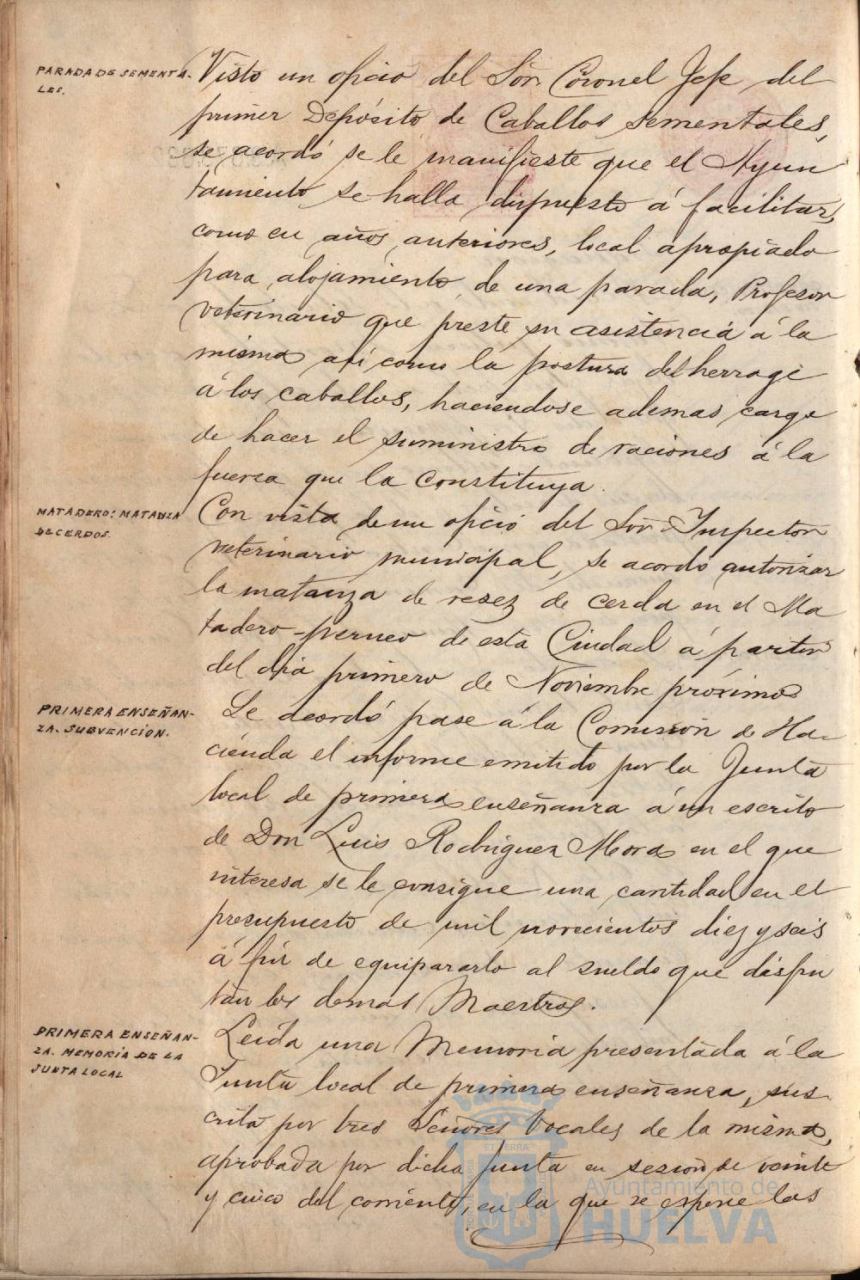 PARADA DE SEMENTA-
LES.
Visto un oficio del Sor. Coronel Jefe del
primer Depósito de Caballos sementales,
se acordó se le manifieste que el Ayun
tamiento se halla dispuesto á facilitar,
como en años anteriores, local apropiado
para alojamiento de una parada, Profesor
veterinario que preste su asistencia á la
misma así como la postura del herrage
á los caballos, haciendose ademas cargo
de hacer el suministro de raciones á la
fuerza que la constituya.
MATADERO: MATANZA
DE CERDOS.
Con vista de un oficio del Sor. Inspector
veterinario municipal, se acordó autorizar
la matanza de reses de cerda en el Ma
tadero-perneo de esta Ciudad á partir
del dia primero de Noviembre próximo
PRIMERA ENSEÑAN-
ZA. SUBVENCIÓN.
Se acordó pase á la Comisión de Ha-
cienda el informe emitido por la Junta
local de primera enseñanza á un escrito
de Don Luis Rodriguez Mora en el que
interesa se le consigne una cantidad en el
presupuesto de mil novecientos diez y seis
á fin de equipararlo al sueldo que disfru
tan los demas Maestros.
PRIMERA ENSEÑAN-
ZA. MEMORIA DE LA
JUNTA LOCAL
Leída una Memoria presentada á la
Junta local de primera enseñanza, sus-
crita por tres Señores Vocales de la misma,
aprobada por dicha Junta en sesion de veinte
y cinco del corriente, en la que se expone las
Ayuntamiento de
HUELVA